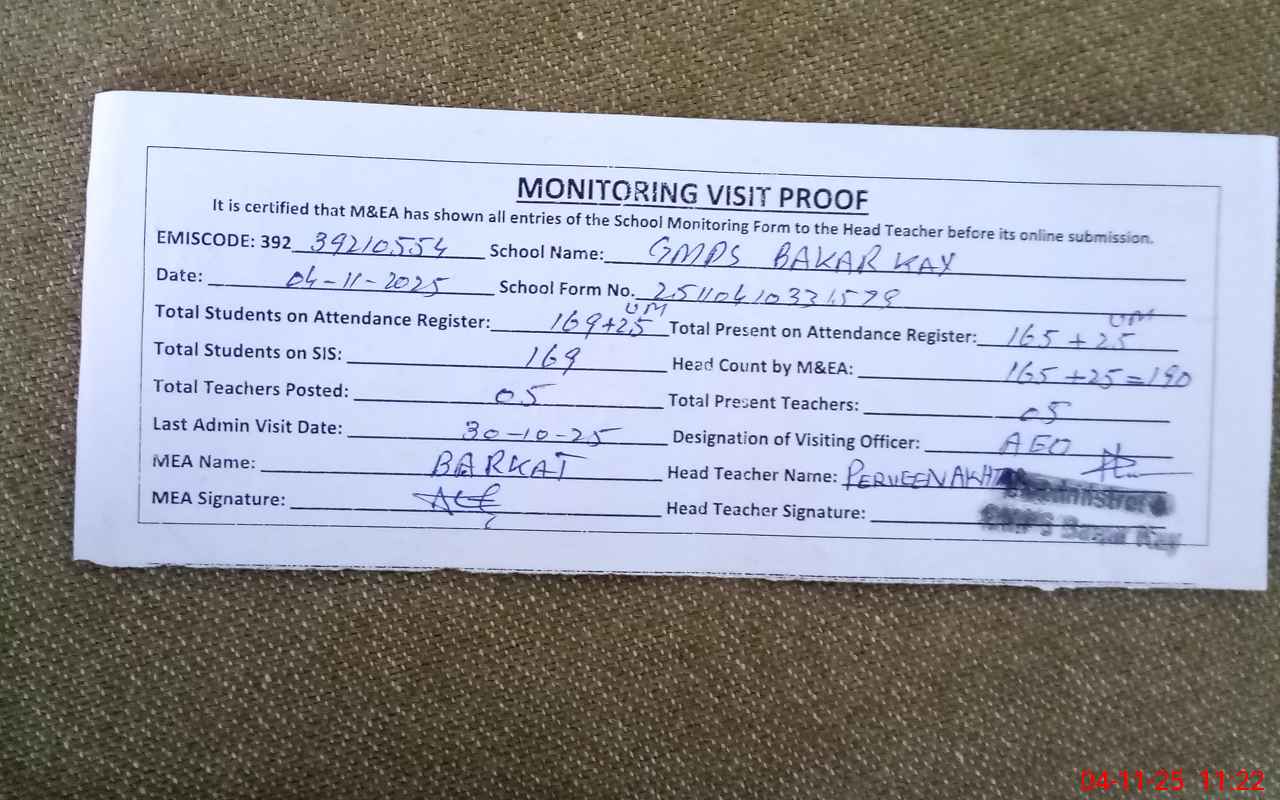 MONITORING VISIT PROOF
It is certified that M&EA has shown all entries of the School Monitoring Form to the Head Teacher before its online submission.
EMISCODE: 392 39210554 School Name: GMPS BAKAR KAY
Date: 04-11-2025 School Form No. 25110410331578
Total Students on Attendance Register: 169+25 UM Total Present on Attendance Register: 165+25 UM
Total Students on SIS: 169 Head Count by M&EA: 165+25=190
Total Teachers Posted: 05 Total Present Teachers: 05
Last Admin Visit Date: 30-10-25 Designation of Visiting Officer: AEO
MEA Name: BARKAT Head Teacher Name: PERVEEN
MEA Signature: Head Teacher Signature:
04-11-25 11:22